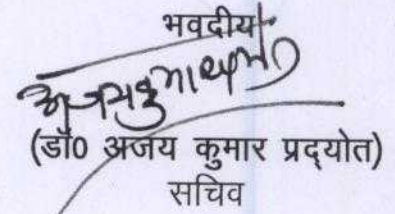 भवदीय
(डॉ0 अजय कुमार प्रद्योत)
सचिव